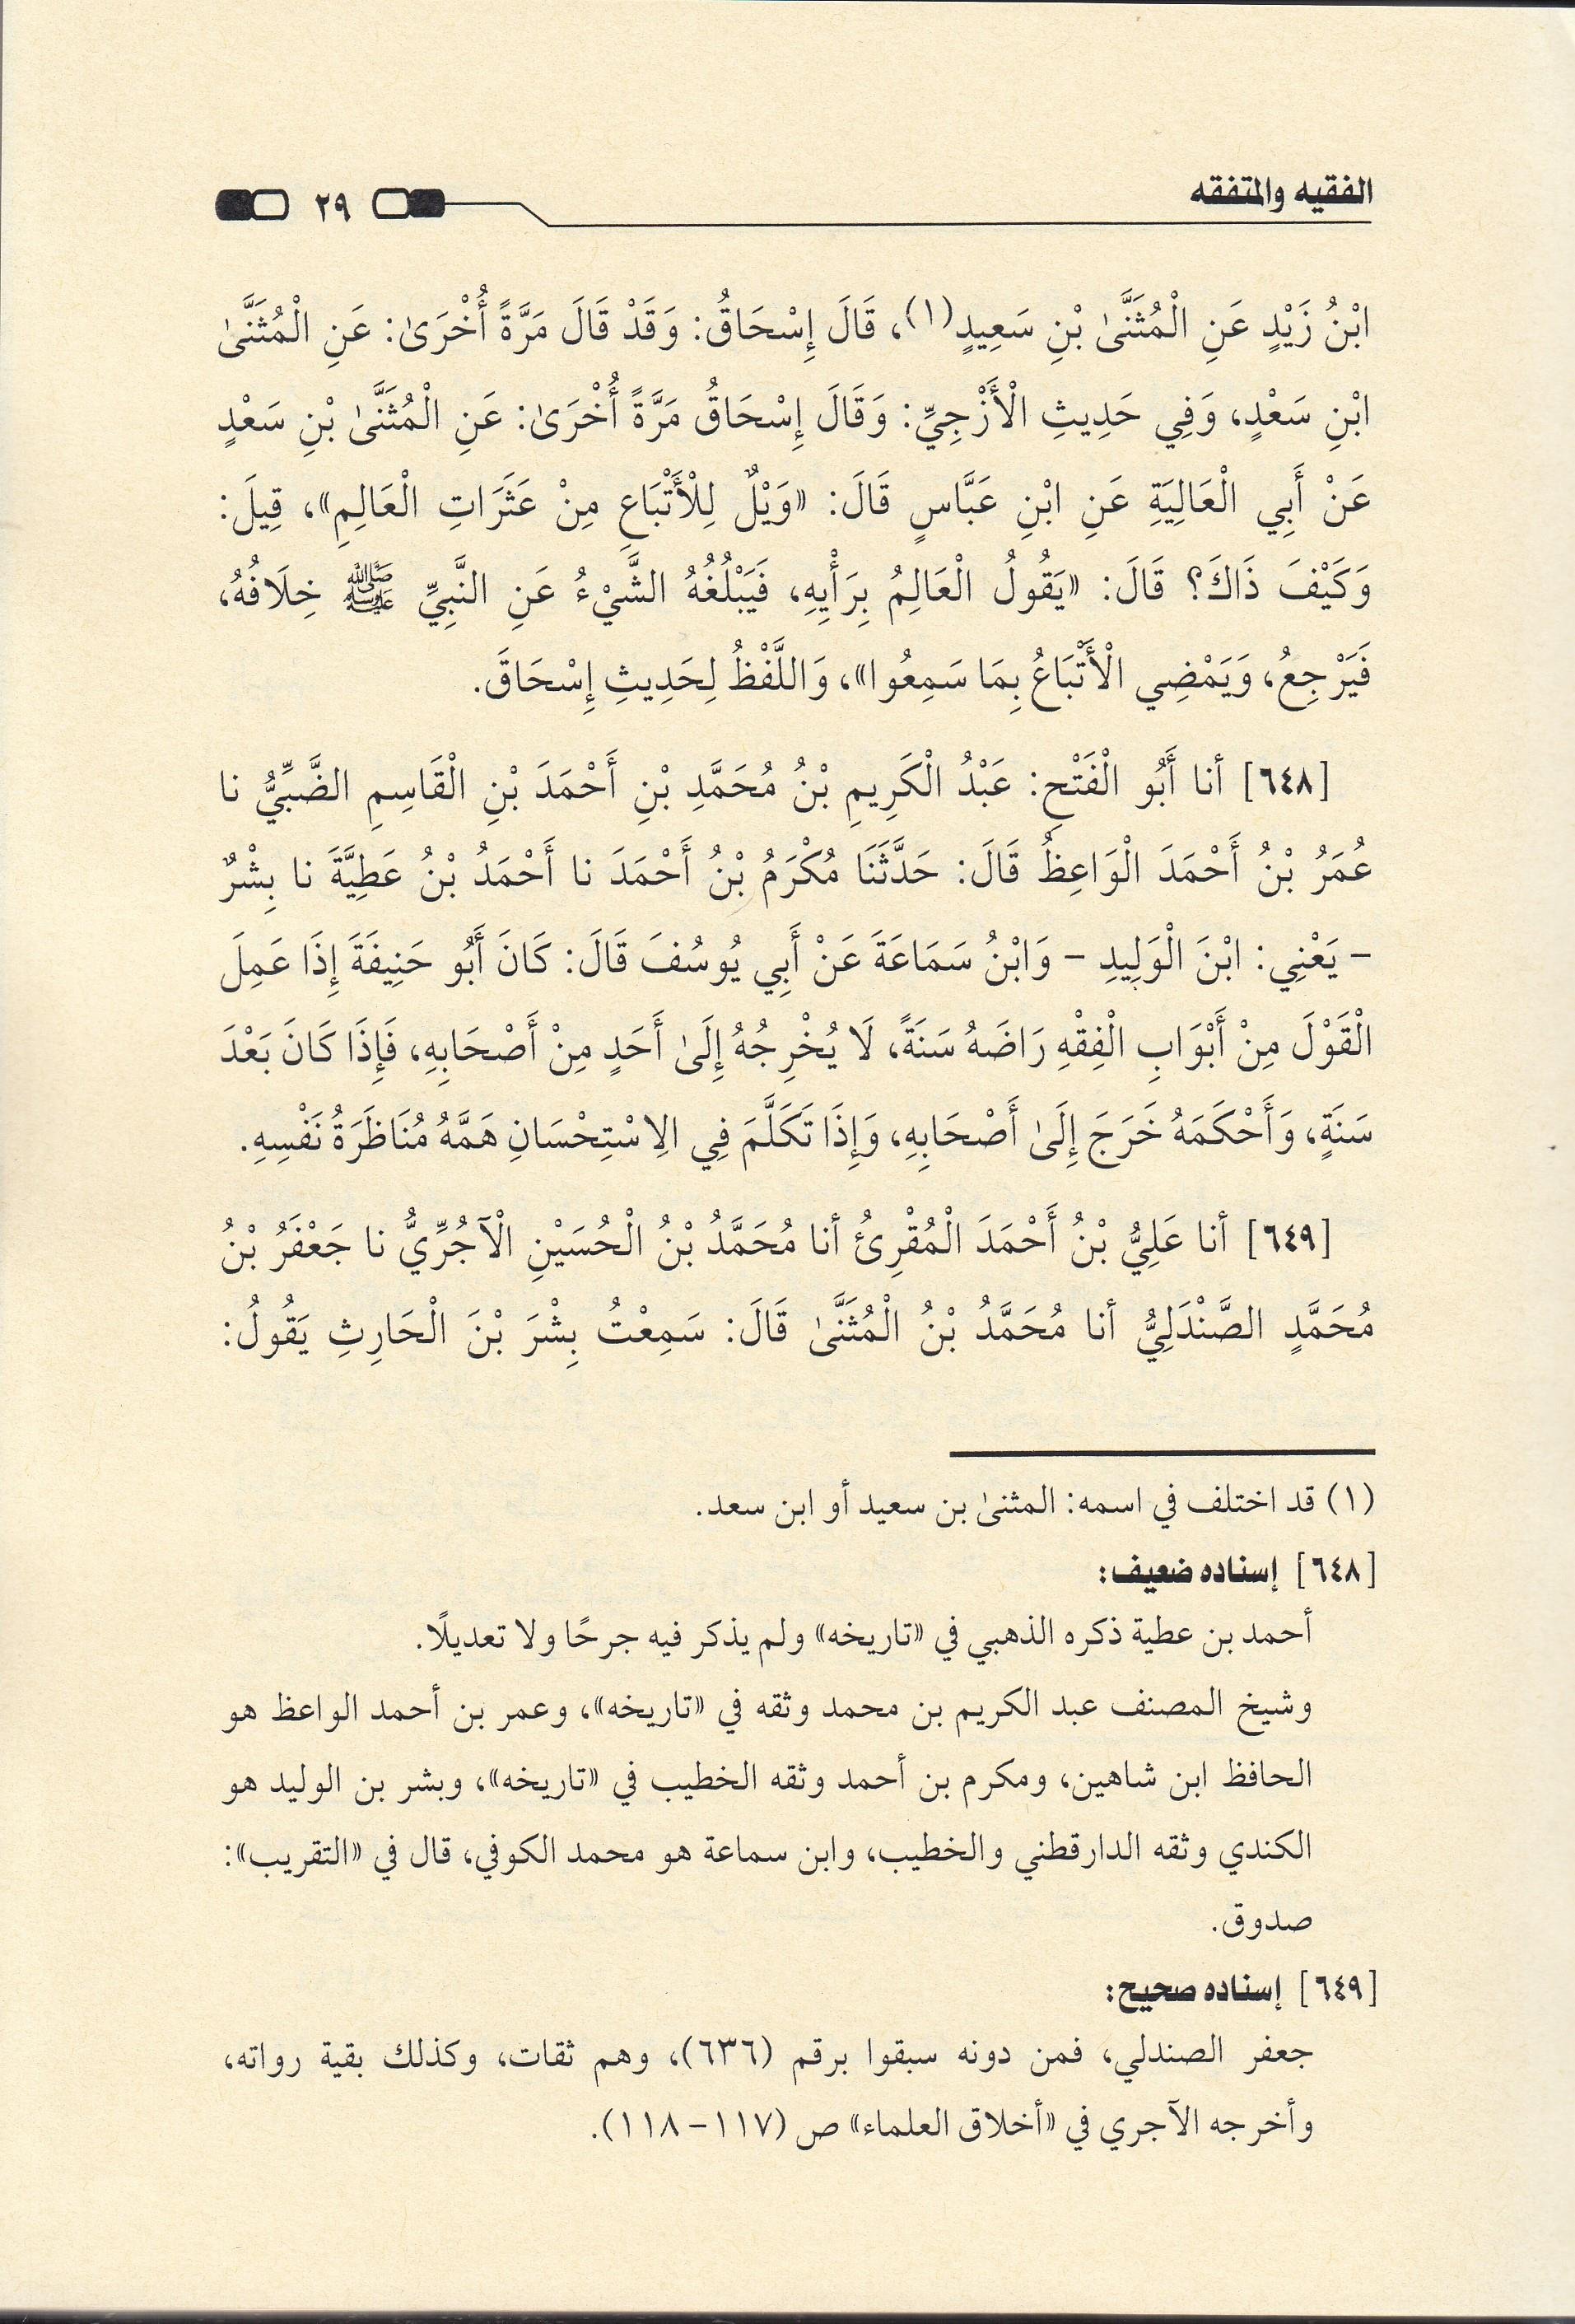 الفقيه والمتفقه ٢٩
ابْنُ زَيْدٍ عَنِ الْمُثَنَّىٰ بْنِ سَعِيدٍ(١)، قَالَ إِسْحَاقُ: وَقَدْ قَالَ مَرَّةً أُخْرَىٰ: عَنِ الْمُثَنَّىٰ
ابْنِ سَعْدٍ، وَفِي حَدِيثِ الْأَزْجِيِّ: وَقَالَ إِسْحَاقُ مَرَّةً أُخْرَىٰ: عَنِ الْمُثَنَّىٰ بْنِ سَعْدٍ
عَنْ أَبِي الْعَالِيَةِ عَنِ ابْنِ عَبَّاسٍ قَالَ: «وَيْلٌ لِلْأَتْبَاعِ مِنْ عَثَرَاتِ الْعَالِمِ»، قِيلَ:
وَكَيْفَ ذَاكَ؟ قَالَ: «يَقُولُ الْعَالِمُ بِرَأْيِهِ، فَيَبْلُغُهُ الشَّيْءُ عَنِ النَّبِيِّ ﷺ خِلَافُهُ،
فَيَرْجِعُ، وَيَمْضِي الْأَتْبَاعُ بِمَا سَمِعُوا»، وَاللَّفْظُ لِحَدِيثِ إِسْحَاقَ.
[٦٤٨] أنا أَبُو الْفَتْحِ: عَبْدُ الْكَرِيمِ بْنُ مُحَمَّدِ بْنِ أَحْمَدَ بْنِ الْقَاسِمِ الضَّبِّيُّ نا
عُمَرُ بْنُ أَحْمَدَ الْوَاعِظُ قَالَ: حَدَّثَنَا مُكْرَمُ بْنُ أَحْمَدَ نا أَحْمَدُ بْنُ عَطِيَّةَ نا بِشْرٌ
- يَعْنِي: ابْنَ الْوَلِيدِ - وَابْنُ سَمَاعَةَ عَنْ أَبِي يُوسُفَ قَالَ: كَانَ أَبُو حَنِيفَةَ إِذَا عَمِلَ
الْقَوْلَ مِنْ أَبْوَابِ الْفِقْهِ رَاضَهُ سَنَةً، لَا يُخْرِجُهُ إِلَىٰ أَحَدٍ مِنْ أَصْحَابِهِ، فَإِذَا كَانَ بَعْدَ
سَنَةٍ، وَأَحْكَمَهُ خَرَجَ إِلَىٰ أَصْحَابِهِ، وَإِذَا تَكَلَّمَ فِي الِاسْتِحْسَانِ هَمَّهُ مُنَاظَرَةُ نَفْسِهِ.
[٦٤٩] أنا عَلِيُّ بْنُ أَحْمَدَ الْمُقْرِئُ أنا مُحَمَّدُ بْنُ الْحُسَيْنِ الْآجُرِّيُّ نا جَعْفَرُ بْنُ
مُحَمَّدٍ الصَّنْدَلِيُّ أنا مُحَمَّدُ بْنُ الْمُثَنَّىٰ قَالَ: سَمِعْتُ بِشْرَ بْنَ الْحَارِثِ يَقُولُ:
(١) قد اختلف في اسمه: المثنىٰ بن سعيد أو ابن سعد.
[٦٤٨] إسناده ضعيف:
أحمد بن عطية ذكره الذهبي في «تاريخه» ولم يذكر فيه جرحًا ولا تعديلًا.
وشيخ المصنف عبد الكريم بن محمد وثقه في «تاريخه»، وعمر بن أحمد الواعظ هو
الحافظ ابن شاهين، ومكرم بن أحمد وثقه الخطيب في «تاريخه»، وبشر بن الوليد هو
الكندي وثقه الدارقطني والخطيب، وابن سماعة هو محمد الكوفي، قال في «التقريب»:
صدوق.
[٦٤٩] إسناده صحيح:
جعفر الصندلي، فمن دونه سبقوا برقم (٦٣٦)، وهم ثقات، وكذلك بقية رواته،
وأخرجه الآجري في «أخلاق العلماء» ص (١١٧- ١١٨).